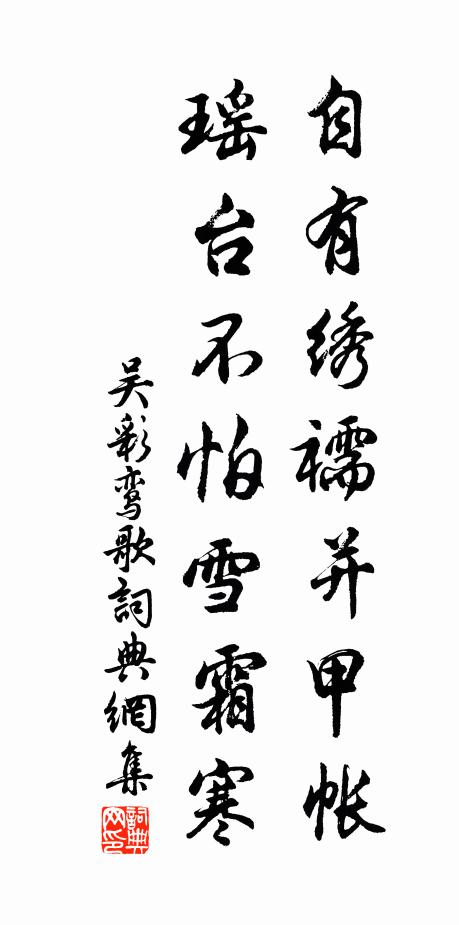 自有绣襦并甲帐
瑶台不怕雪霜寒
吴彩鸾歌詞典網集
詞典网印